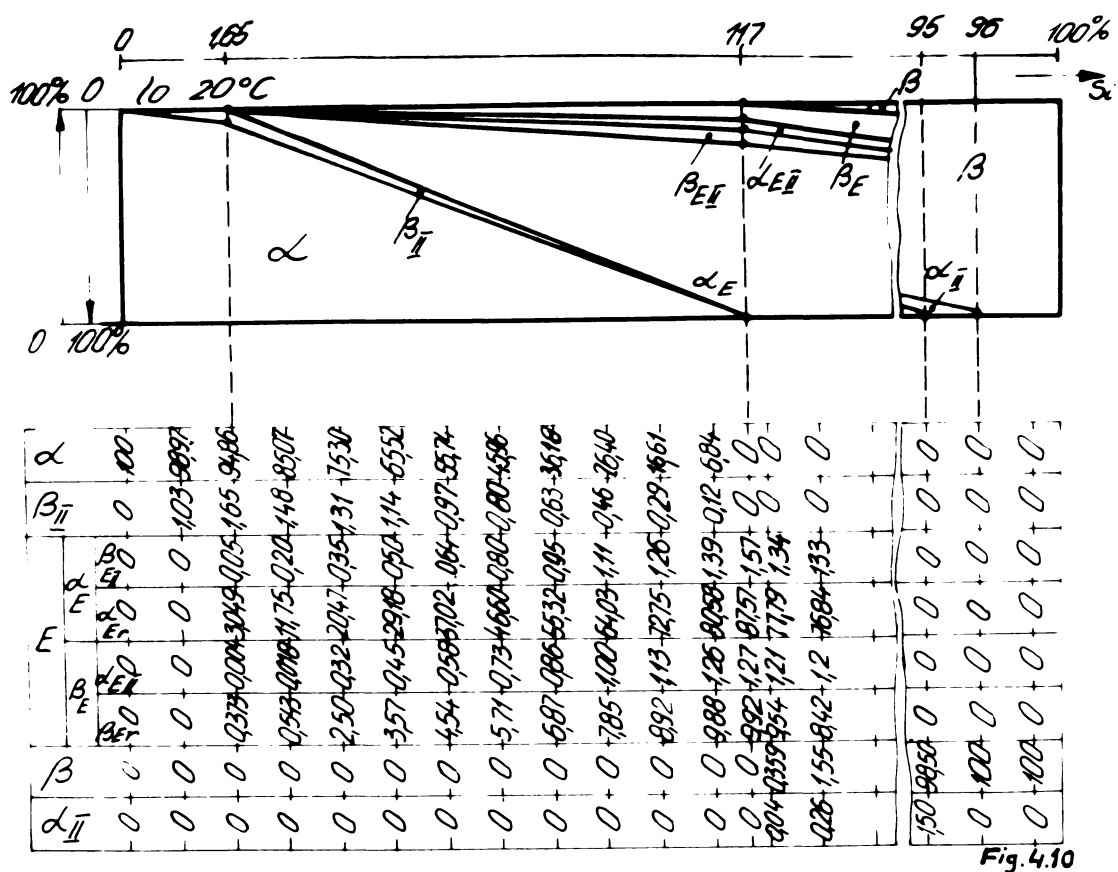 0 1,65 11,7 95 96 100%
Si
100% 0 lo 20°C
β
β_EII α_EII β_E β
β_II
α α_E α_II
0 100%
α 100 98,97 94,86 85,07 75,30 65,52 55,74 45,96 36,18 26,40 16,61 6,84 0 0 0 0 0 0
β_II 0 1,03 1,65 1,48 1,31 1,14 0,97 0,80 0,63 0,46 0,29 0,12 0 0 0 0 0 0
E α_E β_EII 0 0 0,05 0,20 0,35 0,50 0,64 0,80 0,95 1,11 1,26 1,39 1,57 1,34 1,33 0 0 0
α_Er 0 0 11,75 20,47 29,18 37,02 46,60 55,32 64,03 72,75 80,58 87,57 77,79 76,84 0 0 0
β_E α_EII 0 0 0,004 0,018 0,32 0,45 0,58 0,73 0,86 1,00 1,13 1,26 1,27 1,21 1,2 0 0 0
β_Er 0 0 0,373 0,543 2,50 3,57 4,54 5,71 6,87 7,85 8,92 9,88 9,92 9,54 8,42 0 0 0
β 0 0 0 0 0 0 0 0 0 0 0 0 0 0,359 1,55 98,50 100 100
α_II 0 0 0 0 0 0 0 0 0 0 0 0 0 0,04 0,26 1,50 0 0
Fig. 4.10